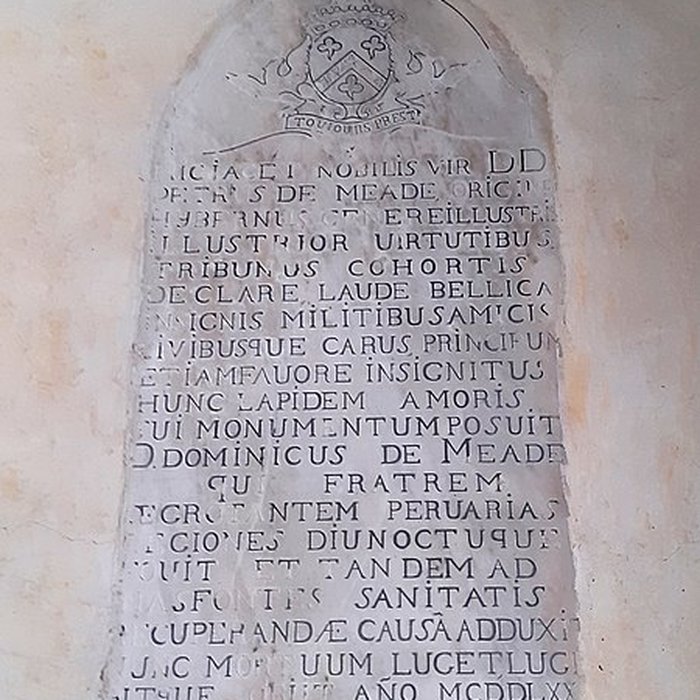 TOUJOURS PREST
HIC JACET NOBILIS VIR DD
PETRUS DE MEADE, ORIGINE
HYBERNUS GENERE ILLUSTRIS
ILLUSTRIOR VIRTUTIBUS
TRIBUNUS COHORTIS
DE CLARE, LAUDE BELLICA
INSIGNIS MILITIBUS AMICIS
CIVIBUSQUE CARUS, PRINCIPUM
ETIAM FAVORE INSIGNITUS
HUNC LAPIDEM AMORIS
SUI MONUMENTUM POSUIT
D. DOMINICUS DE MEADE
QUI FRATREM
ÆGROTANTEM PER VARIAS
REGIONES DIU NOCTUQUE
ET TANDEM AD
HAS FONTES SANITATIS
RECUPERANDÆ CAUSÃ ADDUXIT
NUNC MORTUUM LUGET LUGE
OBIIT AÑO MCDDLXX